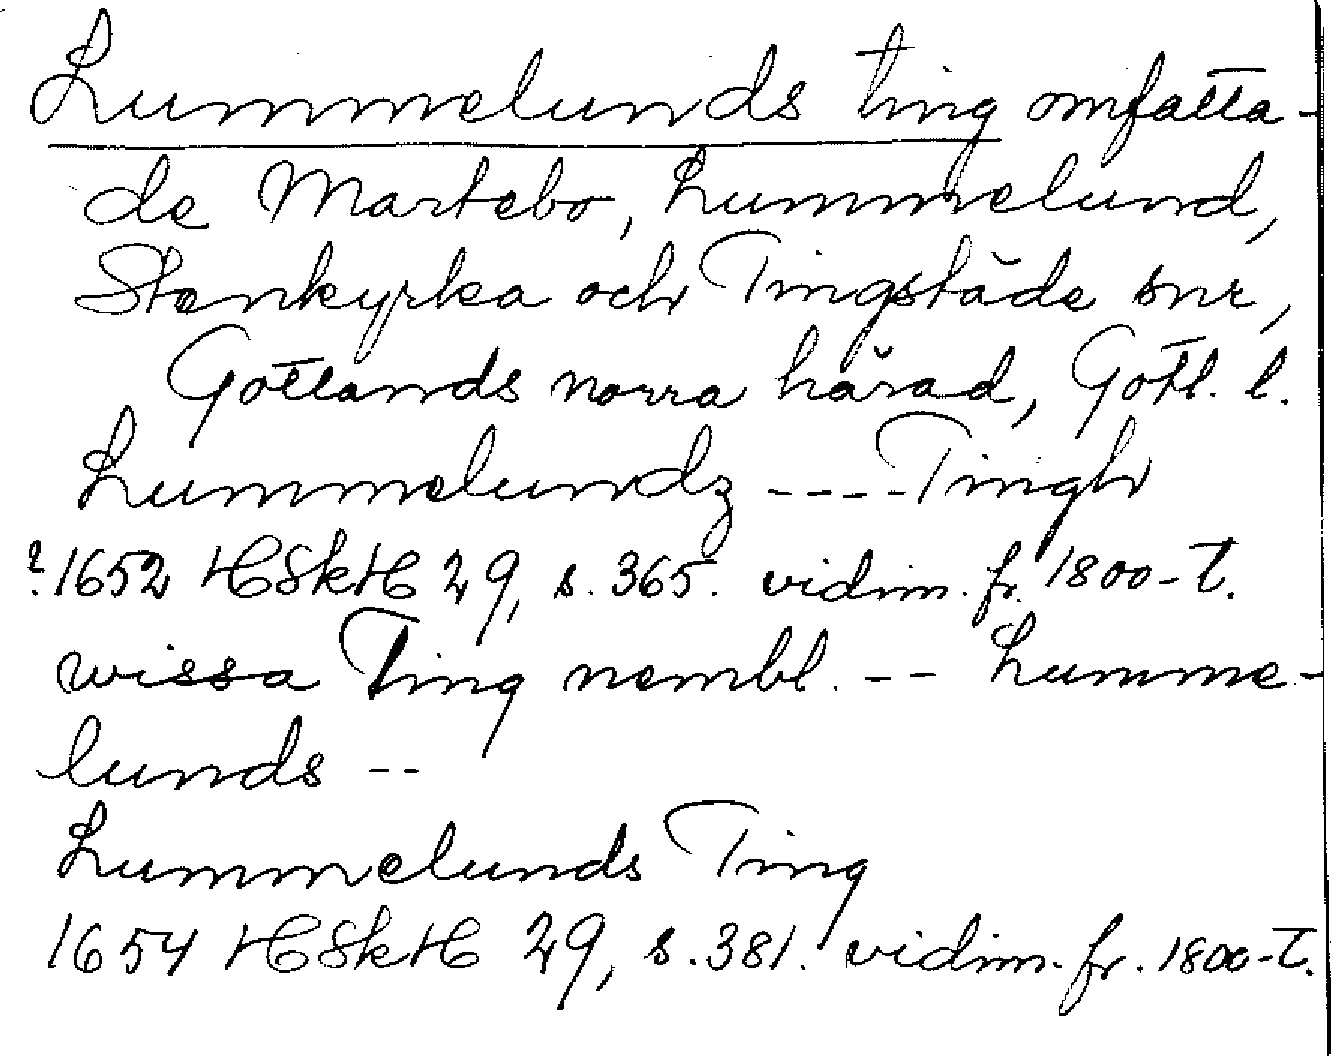 Lummelunds ting omfatta-
de Martebo, Lummelund,
Stenkyrka och Tingstäde snr,
Gotlands norra härad, Gotl. l.
Lummelundz ---- Tingh
? 1652 HSkH 29, s. 365. vidim. fr. 1800-t.
wissa Ting nembl. -- Lumme-
lunds --
Lummelunds Ting
1654 HSkH 29, s. 381. vidim. fr. 1800-t.